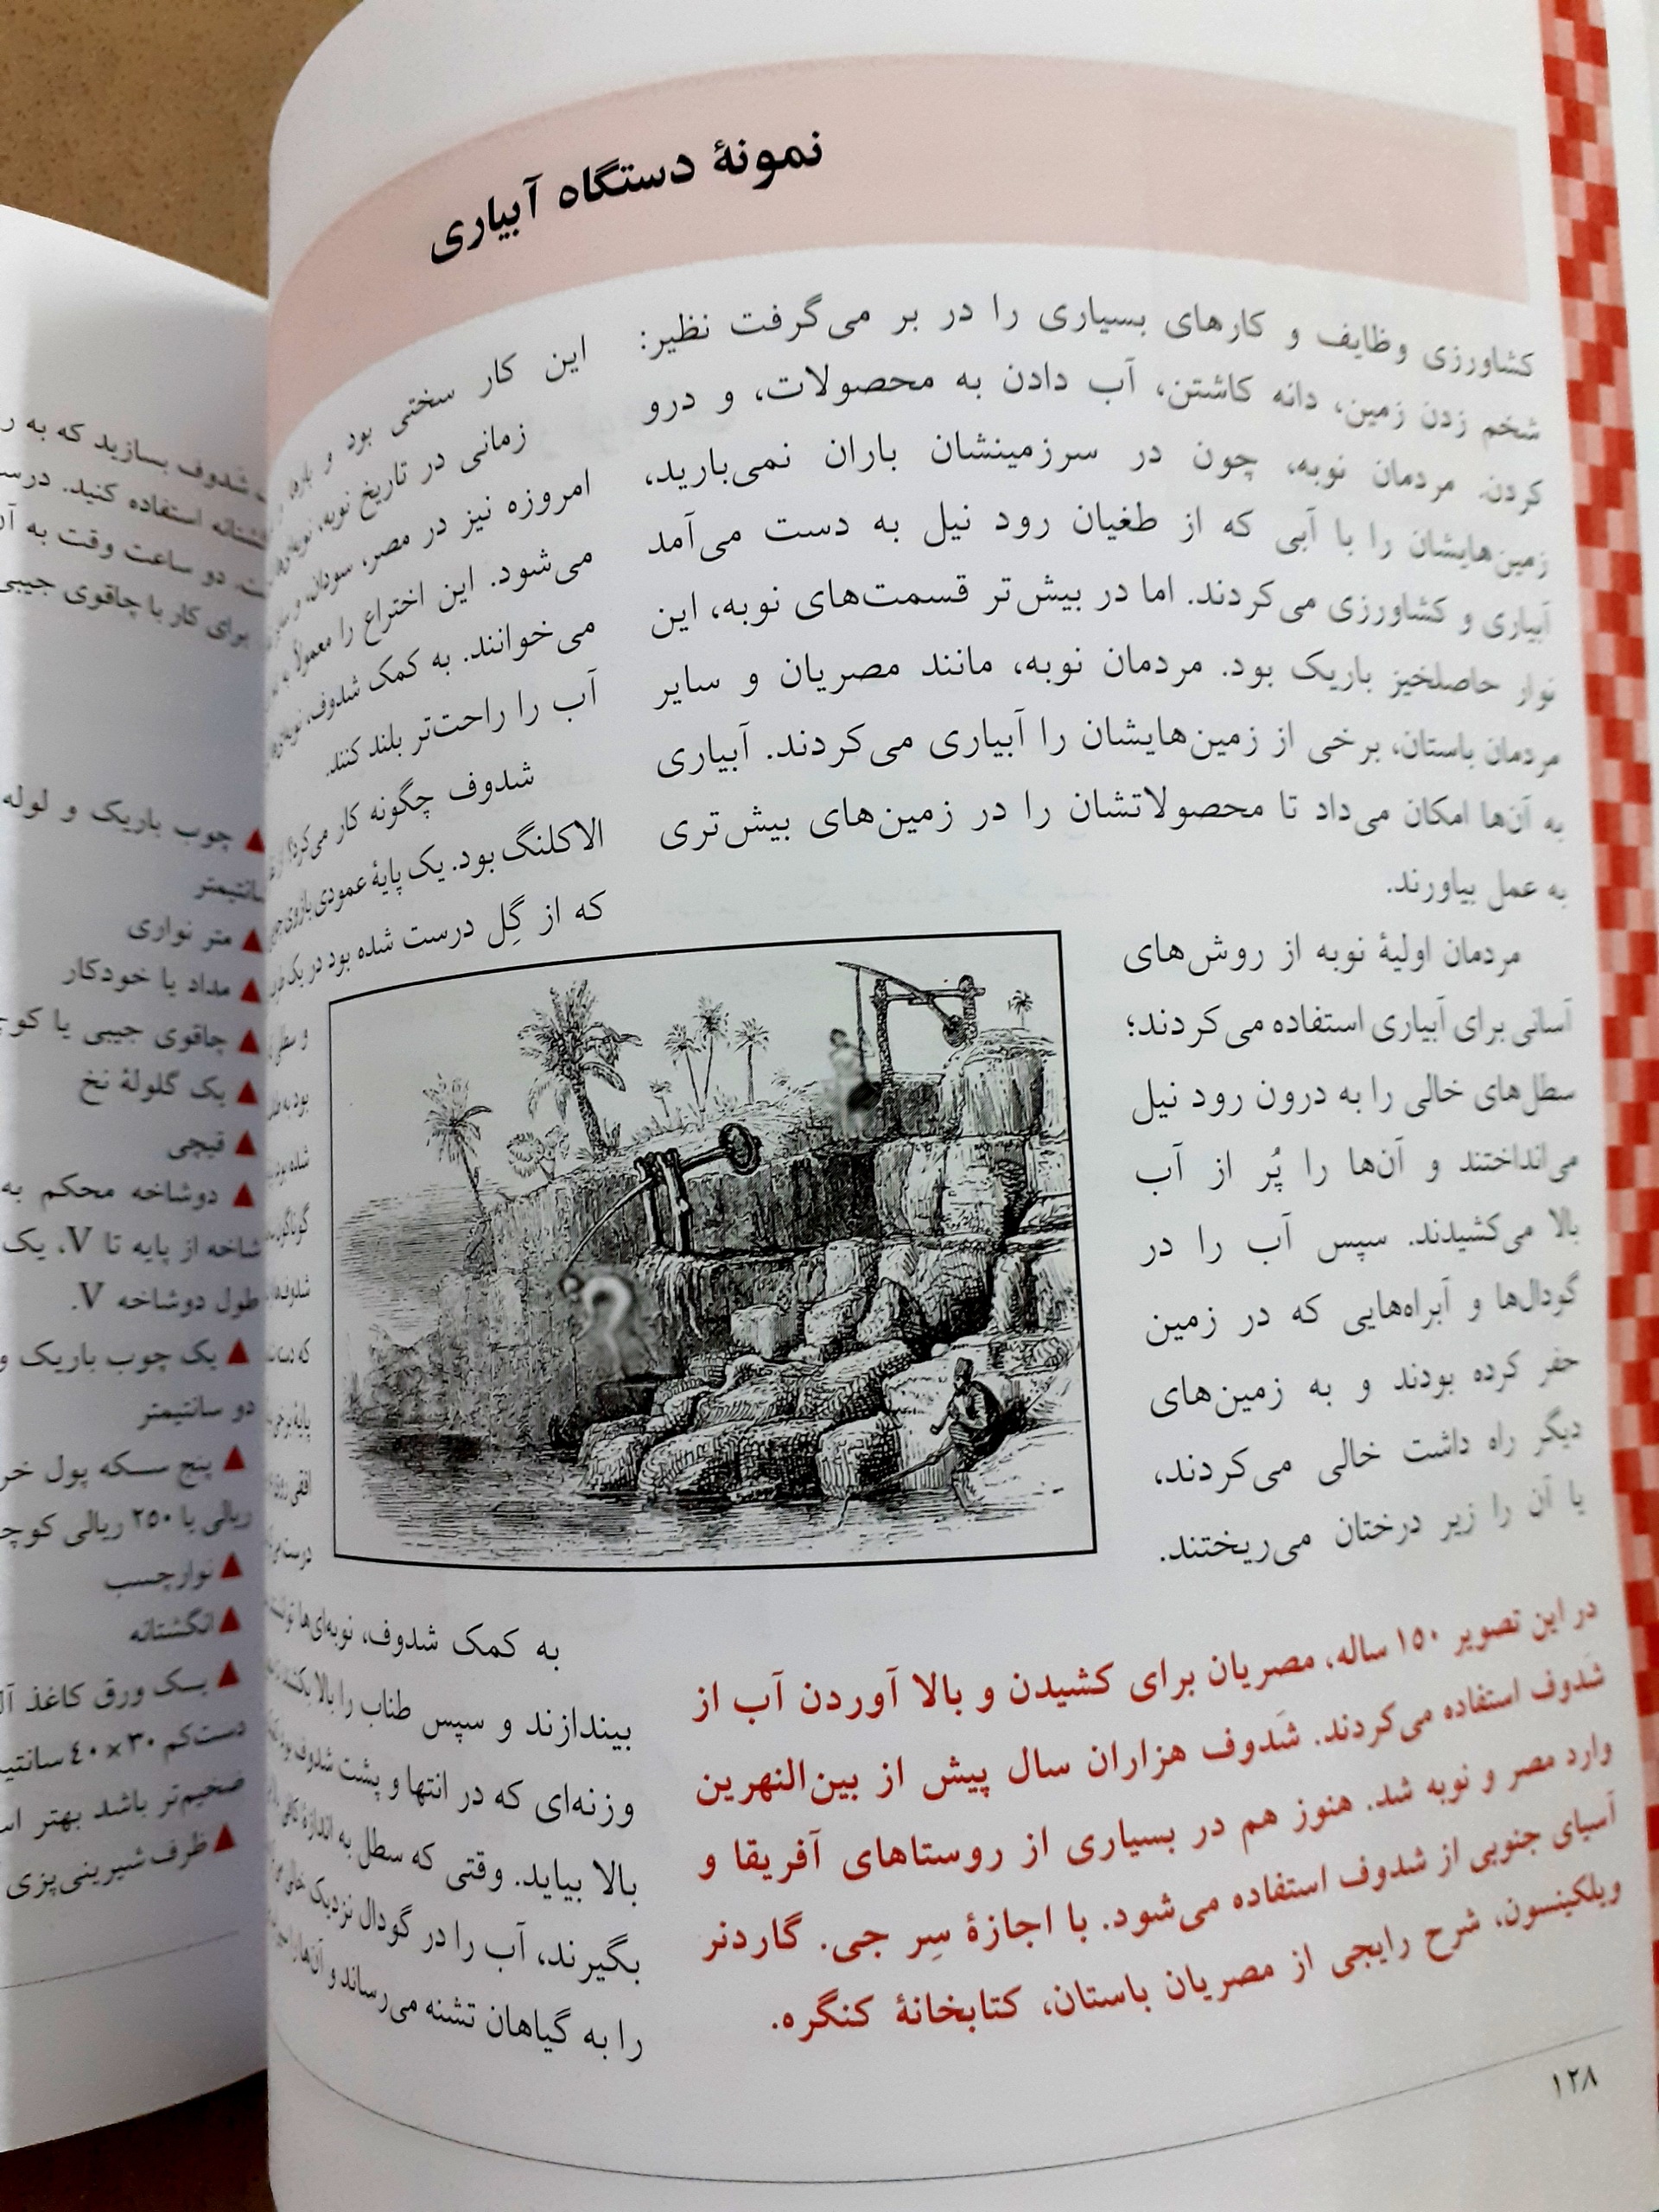 نمونهٔ دستگاه آبیاری
کشاورزی وظایف و کارهای بسیاری را در بر می‌گرفت نظیر:
شخم زدن زمین، دانه کاشتن، آب دادن به محصولات، و درو
کردن. مردمان نوبه، چون در سرزمینشان باران نمی‌بارید،
زمین‌هایشان را با آبی که از طغیان رود نیل به دست می‌آمد
آبیاری و کشاورزی می‌کردند. اما در بیش‌تر قسمت‌های نوبه، این
نوار حاصلخیز باریک بود. مردمان نوبه، مانند مصریان و سایر
مردمان باستان، برخی از زمین‌هایشان را آبیاری می‌کردند. آبیاری
به آن‌ها امکان می‌داد تا محصولاتشان را در زمین‌های بیش‌تری
به عمل بیاورند.
مردمان اولیهٔ نوبه از روش‌های
آسانی برای آبیاری استفاده می‌کردند؛
سطل‌های خالی را به درون رود نیل
می‌انداختند و آن‌ها را پُر از آب
بالا می‌کشیدند. سپس آب را در
گودال‌ها و آبراه‌هایی که در زمین
حفر کرده بودند و به زمین‌های
دیگر راه داشت خالی می‌کردند،
یا آن را زیر درختان می‌ریختند.
در این تصویر ۱۵۰ ساله، مصریان برای کشیدن و بالا آوردن آب از
شَدوف استفاده می‌کردند. شَدوف هزاران سال پیش از بین‌النهرین
وارد مصر و نوبه شد. هنوز هم در بسیاری از روستاهای آفریقا و
آسیای جنوبی از شدوف استفاده می‌شود. با اجازهٔ سِر جی. گاردنر
ویلکینسون، شرح رایجی از مصریان باستان، کتابخانهٔ کنگره.
این کار سختی بود و
زمانی در تاریخ نوبه،
امروزه نیز در مصر، سودان، و
می‌شود. این اختراع را معمولاً به
می‌خوانند. به کمک شدوف،
آب را راحت‌تر بلند کنند.
شدوف چگونه کار می‌کرد؟
الاکلنگ بود. یک پایهٔ عمودی بازوی
که از گِل درست شده بود در یک
و سطل
بود به
شده بود
گوناگون
شدوف‌ها
که دسته
پایه برجی
افقی روی
درست می
به کمک شدوف، نوبه‌ای‌ها
بیندازند و سپس طناب را بالا بکشند
وزنه‌ای که در انتها و پشت شدوف بود
بالا بیاید. وقتی که سطل به اندازهٔ کافی
بگیرند، آب را در گودال نزدیک خالی
را به گیاهان تشنه می‌رساند و آن‌ها را
۱۲۸
شدوف بسازید که به
انگشتانه استفاده کنید.
دو ساعت وقت به
برای کار با چاقوی جیبی
▲ چوب باریک و لوله
سانتیمتر
▲ متر نواری
▲ مداد یا خودکار
▲ چاقوی جیبی یا
▲ یک گلولهٔ نخ
▲ قیچی
▲ دوشاخه محکم به
شاخه از پایه تا V، یک
طول دوشاخه V.
▲ یک چوب باریک و
دو سانتیمتر
▲ پنج سکه پول
ریالی یا ۲۵۰ ریالی
▲ نوارچسب
▲ انگشتانه
▲ یک ورق کاغذ
دست‌کم ۳۰ × ۴۰
ضخیم‌تر باشد بهتر
▲ ظرف شیرینی‌پزی